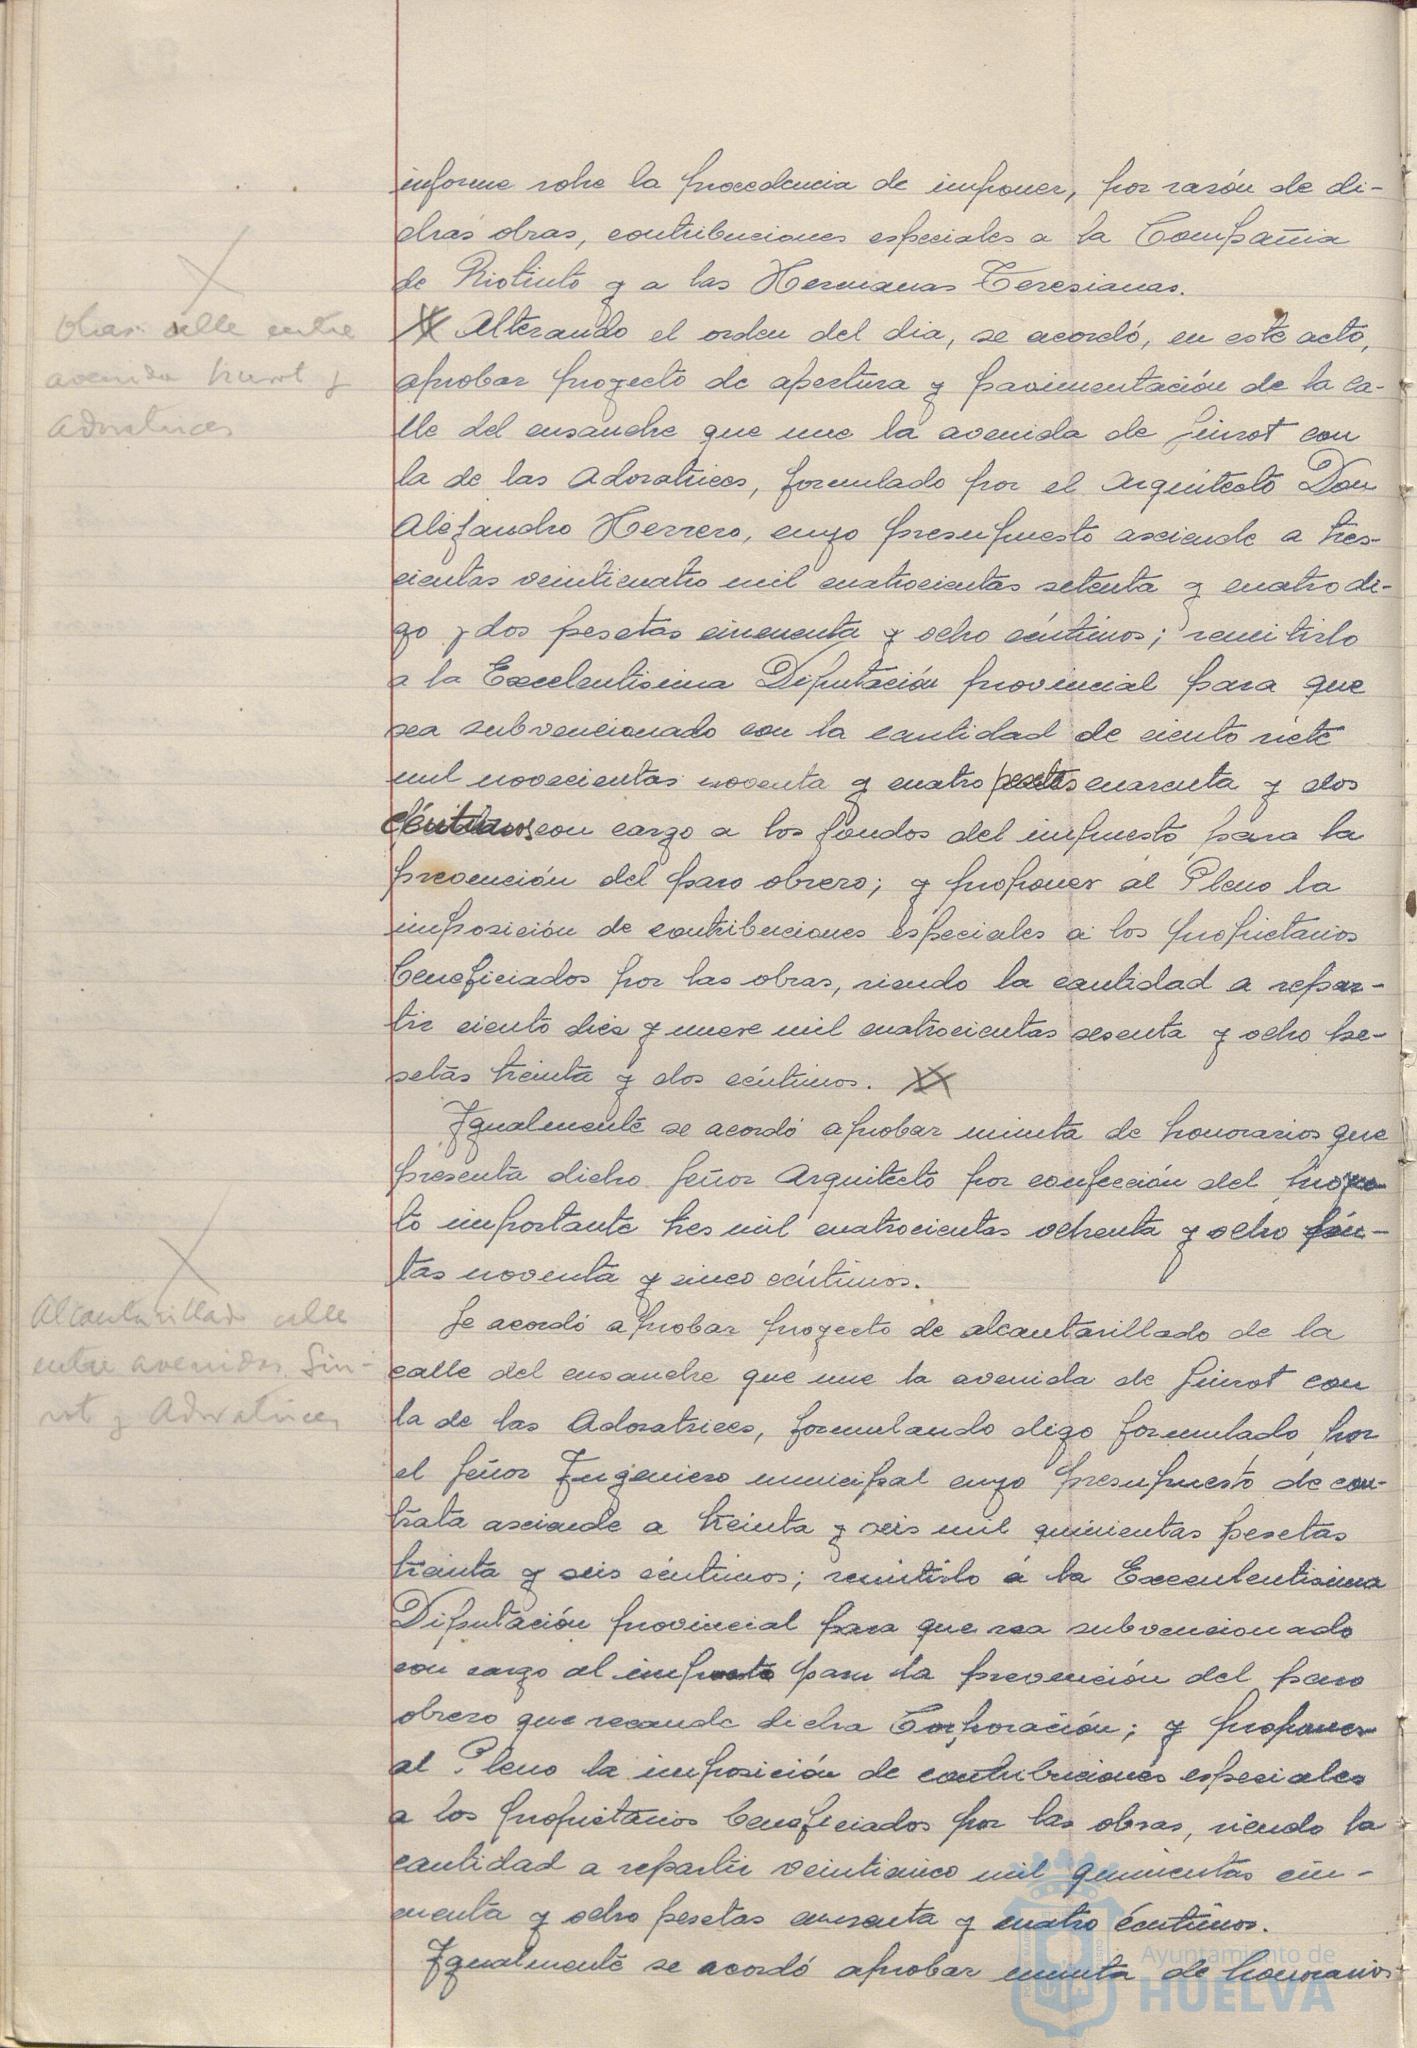 informe sobre la procedencia de imponer, por razón de di-
chas obras, contribuciones especiales a la Compañia
de Riotinto y a las Hermanas Teresianas.
Obras calle entre
avenida Sinrot y
Adoratrices
Alterando el orden del dia, se acordó, en este acto,
aprobar proyecto de apertura y pavimentación de la ca-
lle del ensanche que une la avenida de Sinrot con
la de las Adoratrices, formulado por el Arquitecto Don
Alejandro Herrero, cuyo presupuesto asciende a tres-
cientas veinticuatro mil cuatrocientas setenta y cuatro di-
go y dos pesetas cincuenta y ocho céntimos; remitirlo
a la Excelentisima Diputación provincial para que
sea subvencionado con la cantidad de ciento siete
mil novecientas noventa y cuatro pesetas cuarenta y dos
céntimos con cargo a los fondos del impuesto para la
prevención del paro obrero; y proponer al Pleno la
imposición de contribuciones especiales a los propietarios
beneficiados por las obras, siendo la cantidad a repar-
tir ciento diez y nueve mil cuatrocientas sesenta y ocho pe-
setas treinta y dos céntimos.
Igualmente se acordó aprobar minuta de honorarios que
presenta dicho Señor Arquitecto por confección del proyec
to importante tres mil cuatrocientas ochenta y ocho
tas noventa y cinco céntimos.
Alcantarillado calle
entre avenidas Sin-
rot y Adoratrices
Se acordó aprobar proyecto de alcantarillado de la
calle del ensanche que une la avenida de Sinrot con
la de las Adoratrices, formulando digo formulado por
el Señor Ingeniero municipal cuyo presupuesto de con-
trata asciende a treinta y seis mil quinientas pesetas
treinta y seis céntimos; remitirlo a la Excelentisima
Diputación provincial para que sea subvencionado
con cargo al impuesto para la prevención del paro
obrero que recauda dicha Corporación; y proponer
al Pleno la imposición de contribuciones especiales
a los propietarios beneficiados por las obras, siendo la
cantidad a repartir veinticinco mil quinientas cin-
cuenta y ocho pesetas cuarenta y cuatro céntimos.
Igualmente se acordó aprobar minuta de honorarios
Ayuntamiento de
HUELVA